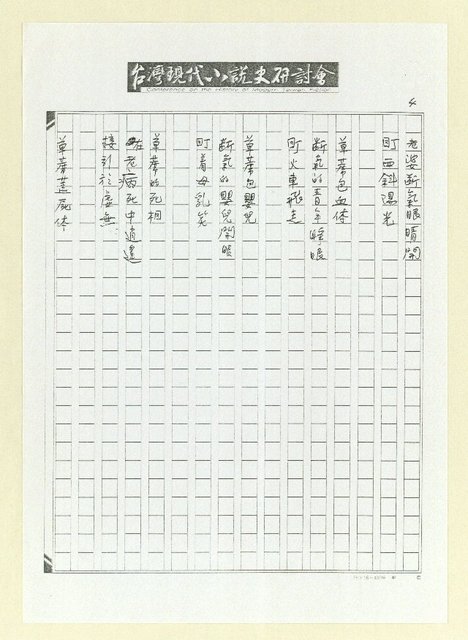 台灣現代小說史研討會
Conference on the History of Modern Taiwan Fiction
4
老婆断氣眼睛開
盯西斜陽光
草蓆包血体
断氣的青年睜眼
盯火車飛走
草蓆包嬰兒
断氣的嬰兒開眼
盯着母乳笑
草蓆的死相
在老病死中逍遙
接引於虛無
草蓆蓋屍体